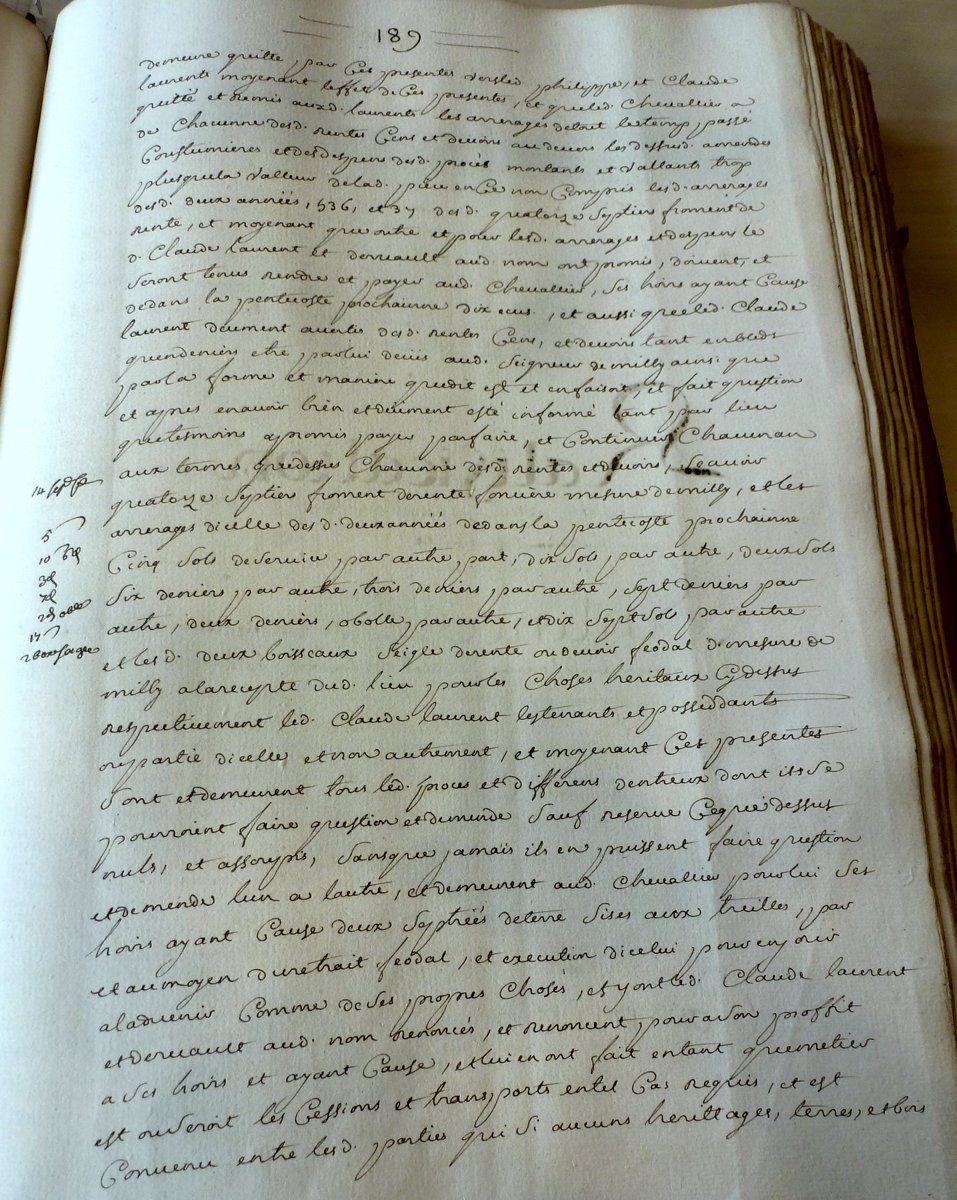 189
demeure quitte, par Ces presentes versled. philippe, et Claude
laurents moyenant leffet de Ces presentes, et queled. Chevallier a
quitté et remis auxd. laurents les arrerages detout letemp passé
de Chacunne desd. rentes Cens et devoirs au devers lesdessusd. amendes
Coustumieres et desdespens desd. procès montants et vallants trop
plusquela valleur delad. piece en Ce non Compris lesd. arrerages
desd. deux années, 1536, et 37 desd. quatorze septiers froment de
rente, et moyenant que outre et pour lesd. arrerages et despens le
d. Claude laurent et deruault aud. nom ont promis, doivent, et
seront tenus rendre et payer aud. Chevallier, ses hoirs ayant Cause
dedans la pentecoste prochainne dix ecus, et aussi queled. Claude
laurent deument avertis desd. rentes Cens, et devoirs tant enbleds
quendeniers etre parlui deües aud. Seigneur demilly ainsi que
parla forme et maniere quedit est et enfaisant, il fait question
et apres enavoir bien et deüment esté informé tant par lieu
quetesmoins a promis payer parfaire, et Continuer Chacunan
aux termes quedessus Chacunne desd. rentes et devoirs, scavoir
14 sept. fr.
quatorze septiers froment derente fonciere mesure demilly, et les
arrerages dicelle desd. deux années dedans la pentecoste prochainne
5 s
Cinq sols deservice par autre part, dix sols par autre, deux sols
10 s
six deniers par autre, trois deniers par autre, sept deniers par
3d
7d
autre, deux deniers, obolle par autre, et dix sept sols par autre
2d obole
17 s
et les d. deux boisseaux seigle derente ou devoir feodal d. mesure de
2 boix seigle
milly a larecepte dud. lieu pour les Choses heritaux Cydessus
respectivement led. Claude laurent lestenants et possedants
oupartie dicelle et non autrement, et moyenant Ces presentes
sont et demeurent tous led. proces et differens dentreux dont ils se
pouroient faire question et demande sauf reserve Ceque dessus
nuls, et assoupis, sansque jamais ils en puissent faire question
et demende lun a lautre, et demeurent aud. Chevallier pour lui ses
hoirs ayant Cause deux septrées deterre sises aux treilles, par
et aumoyen duretrait feodal, et execution dicelui pour en jouir
aladvenir Comme de ses propres Choses, et y ont led. Claude laurent
et deruault aud. nom renoncés, et renoncent pour a son proffit
a ses hoirs et ayant Cause, et lui en ont fait entant quemetier
est ou seroit les Cessions et transports entel Cas requis, et est
Convenu entre lesd. parties qui si aucuns herittages, terres, et bois